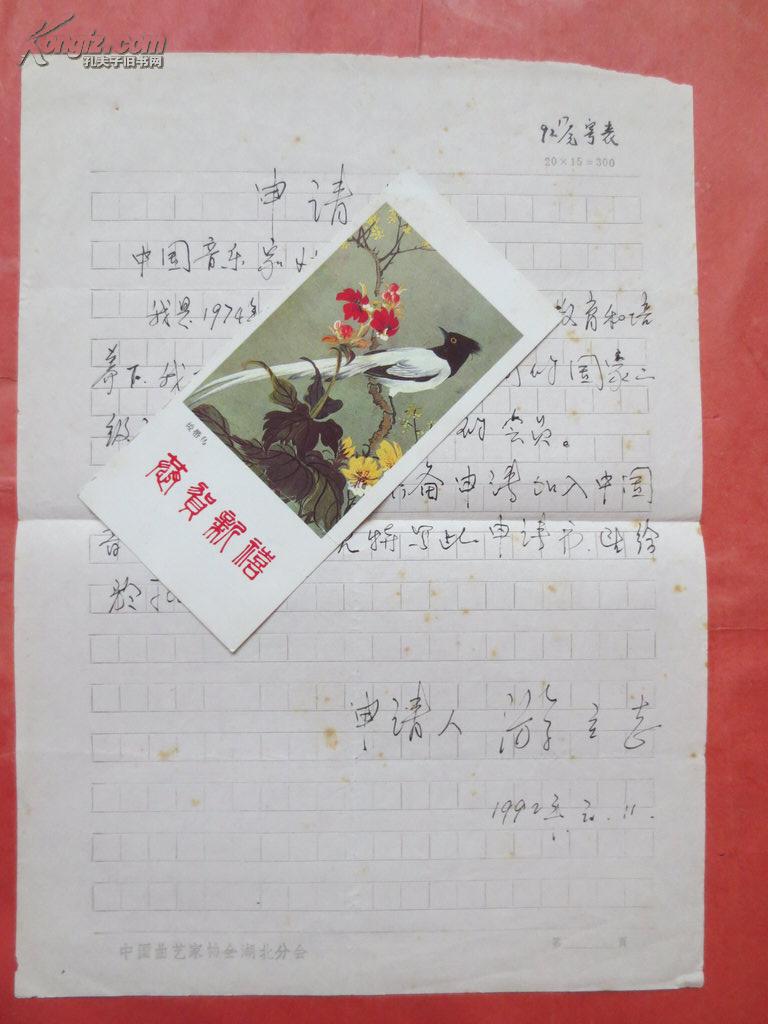 Kongfz.com
孔夫子旧书网
20×15=300
申请
中国音乐家
我是1974 教育和培
养下.我 的国家二
级 的会员。
备申请加入中国
音 特写此申请书.
申请人 游立志
1992年 11.
绶带鸟
恭贺新禧
中国曲艺家协会湖北分会
第 页